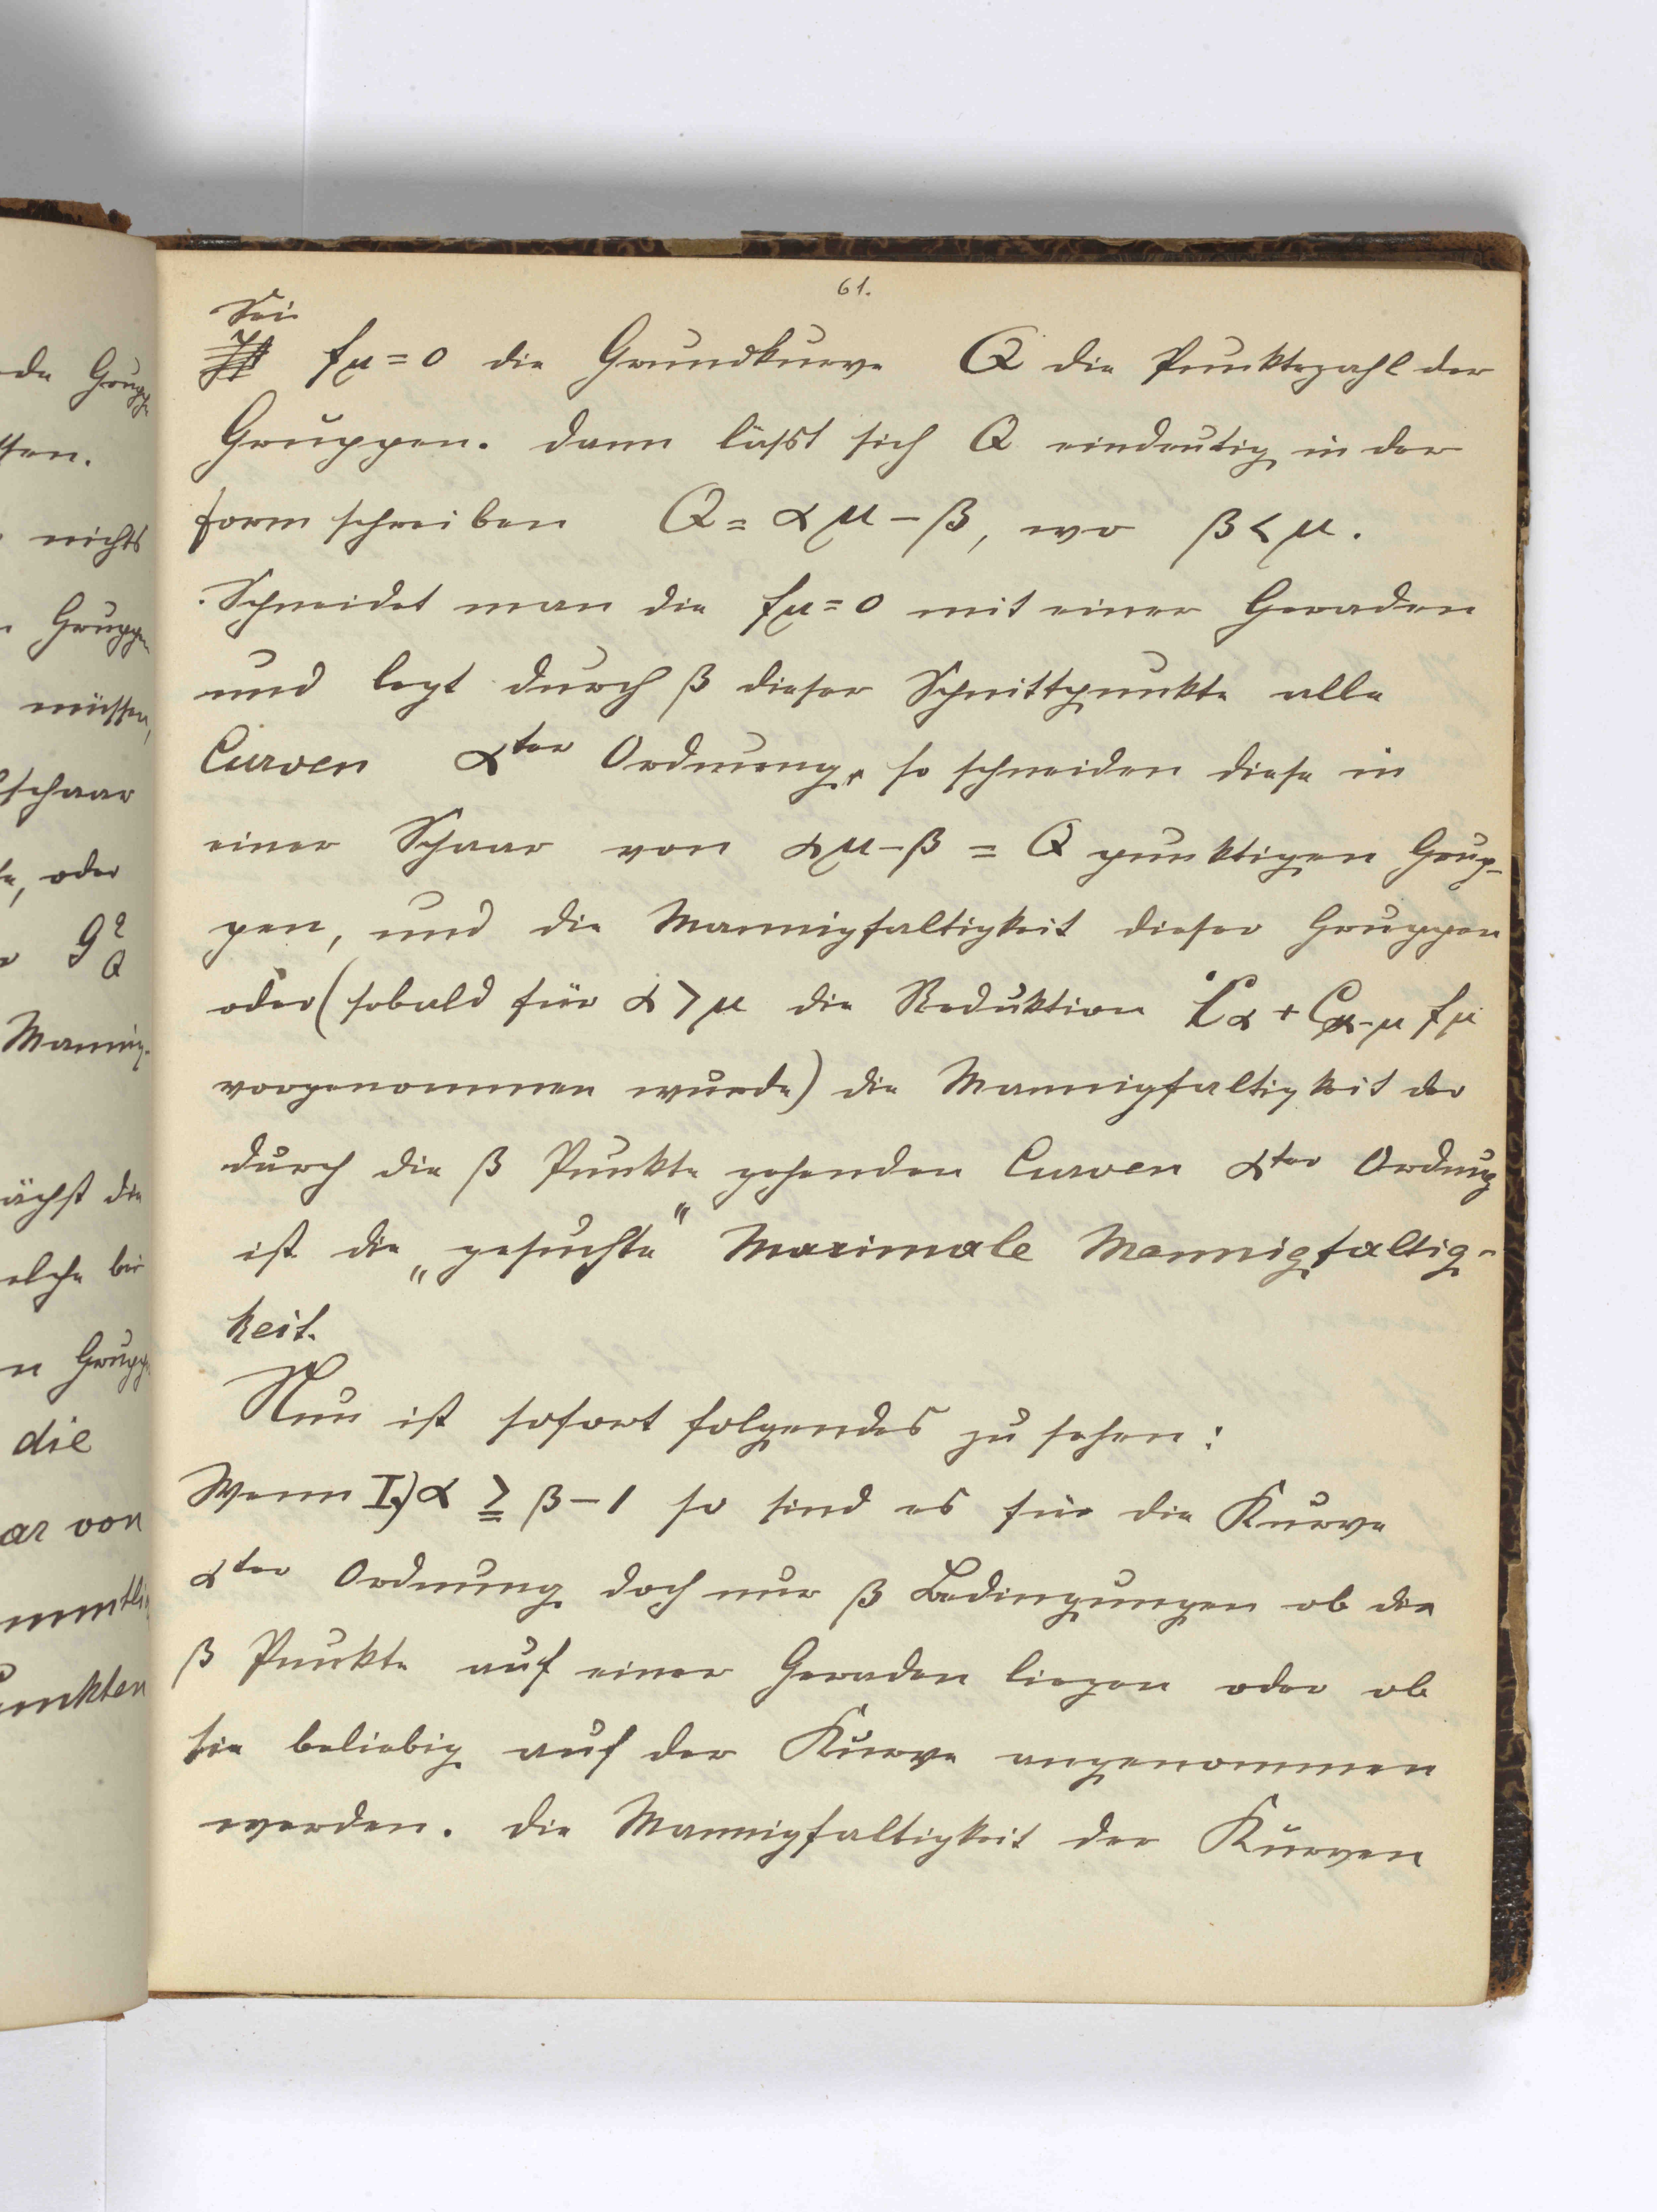 61.
Sei
Ist fμ = 0 die Grundkurve Q die Punktezahl der
Gruppen. Dann läßt sich Q eindeutig in der
Form schreiben Q = αμ − β, wo β < μ.
Schneidet man die fμ = 0 mit einer Geraden
und legt durch β dieser Schnittpunkte alle
Curven αter Ordnung, so schneiden diese in
einer Schaar von αμ − β = Q punktigen Grup-
pen, und die Mannigfaltigkeit dieser Gruppen
oder (sobald für α > μ die Reduktion Cα + Cα−μ fμ
vorgenommen wurde) die Mannigfaltigkeit der
durch die β Punkte gehenden Curven αter Ordnung
ist die „gesuchte“ Maximale Mannigfaltig-
keit.
Nun ist sofort folgendes zu sehen:
Wenn I.) α ≧ β − 1 so sind es für die Kurve
αter Ordnung doch nur β Bedingungen ob die
β Punkte auf einer Geraden liegen oder ob
sie beliebig auf der Kurve angenommen
werden. Die Mannigfaltigkeit der Kurven
de Gruppe
nichts
Gruppen
müssen,
schaar
oder
g q Q
Mannig-
ächst die
elche bei
n Grupp
die
ar von
unkten